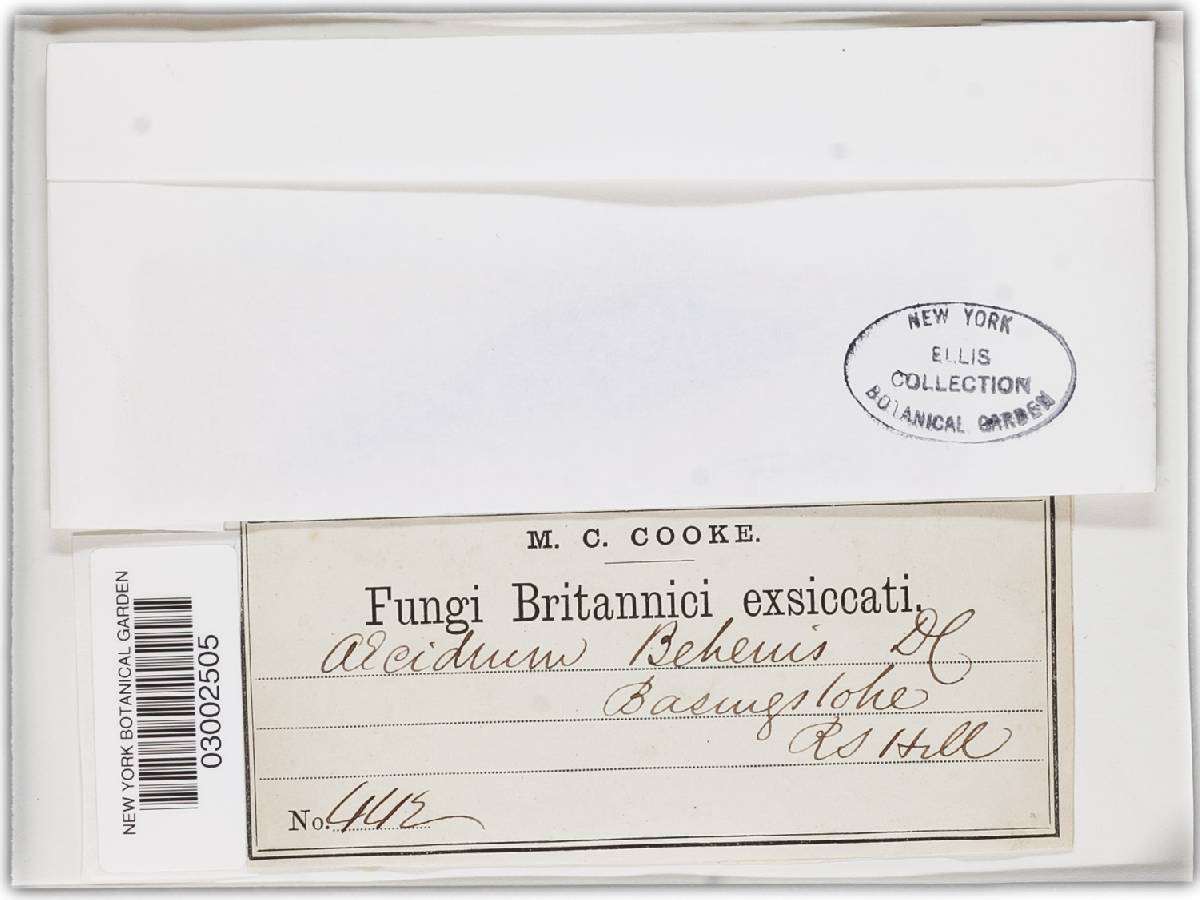 NEW YORK
ELLIS
COLLECTION
BOTANICAL GARDEN
M. C. COOKE.
Fungi Britannici exsiccati.
Æcidium Behenis DC
Basingstoke
RS Hill
No. 442
NEW YORK BOTANICAL GARDEN
03002505